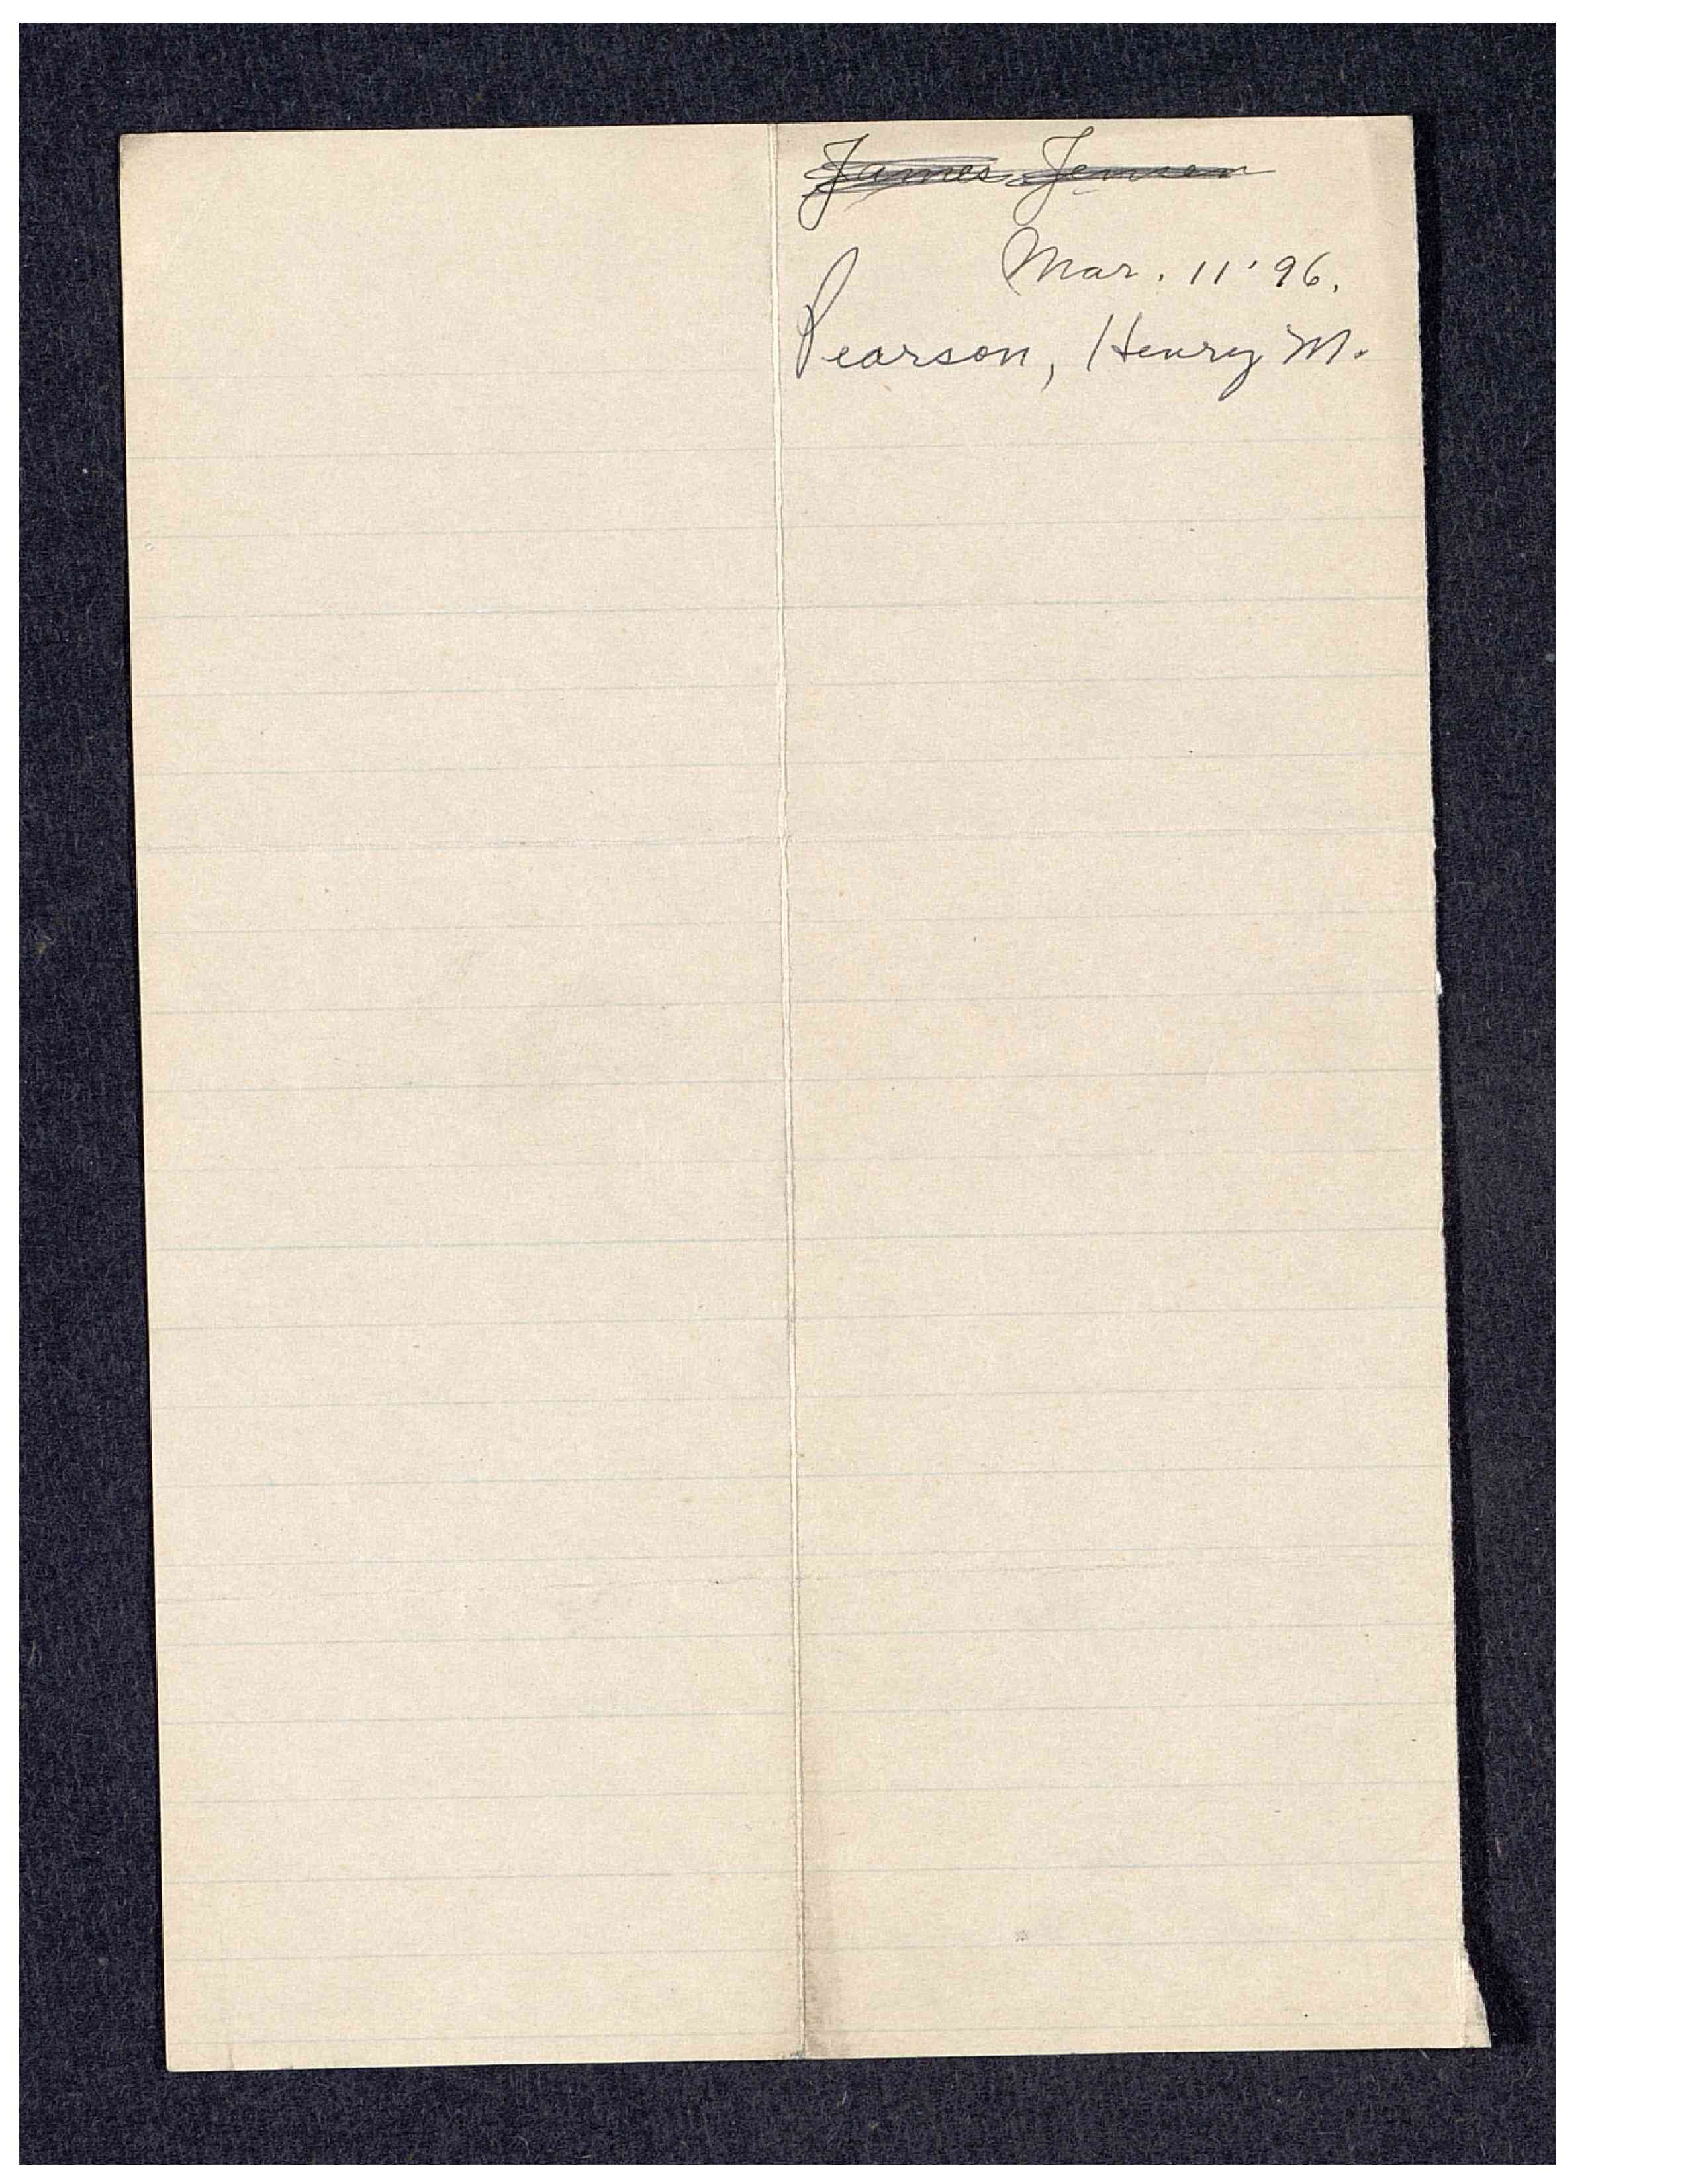 James Jensen
Mar. 11 '96.
Pearson, Henry M.